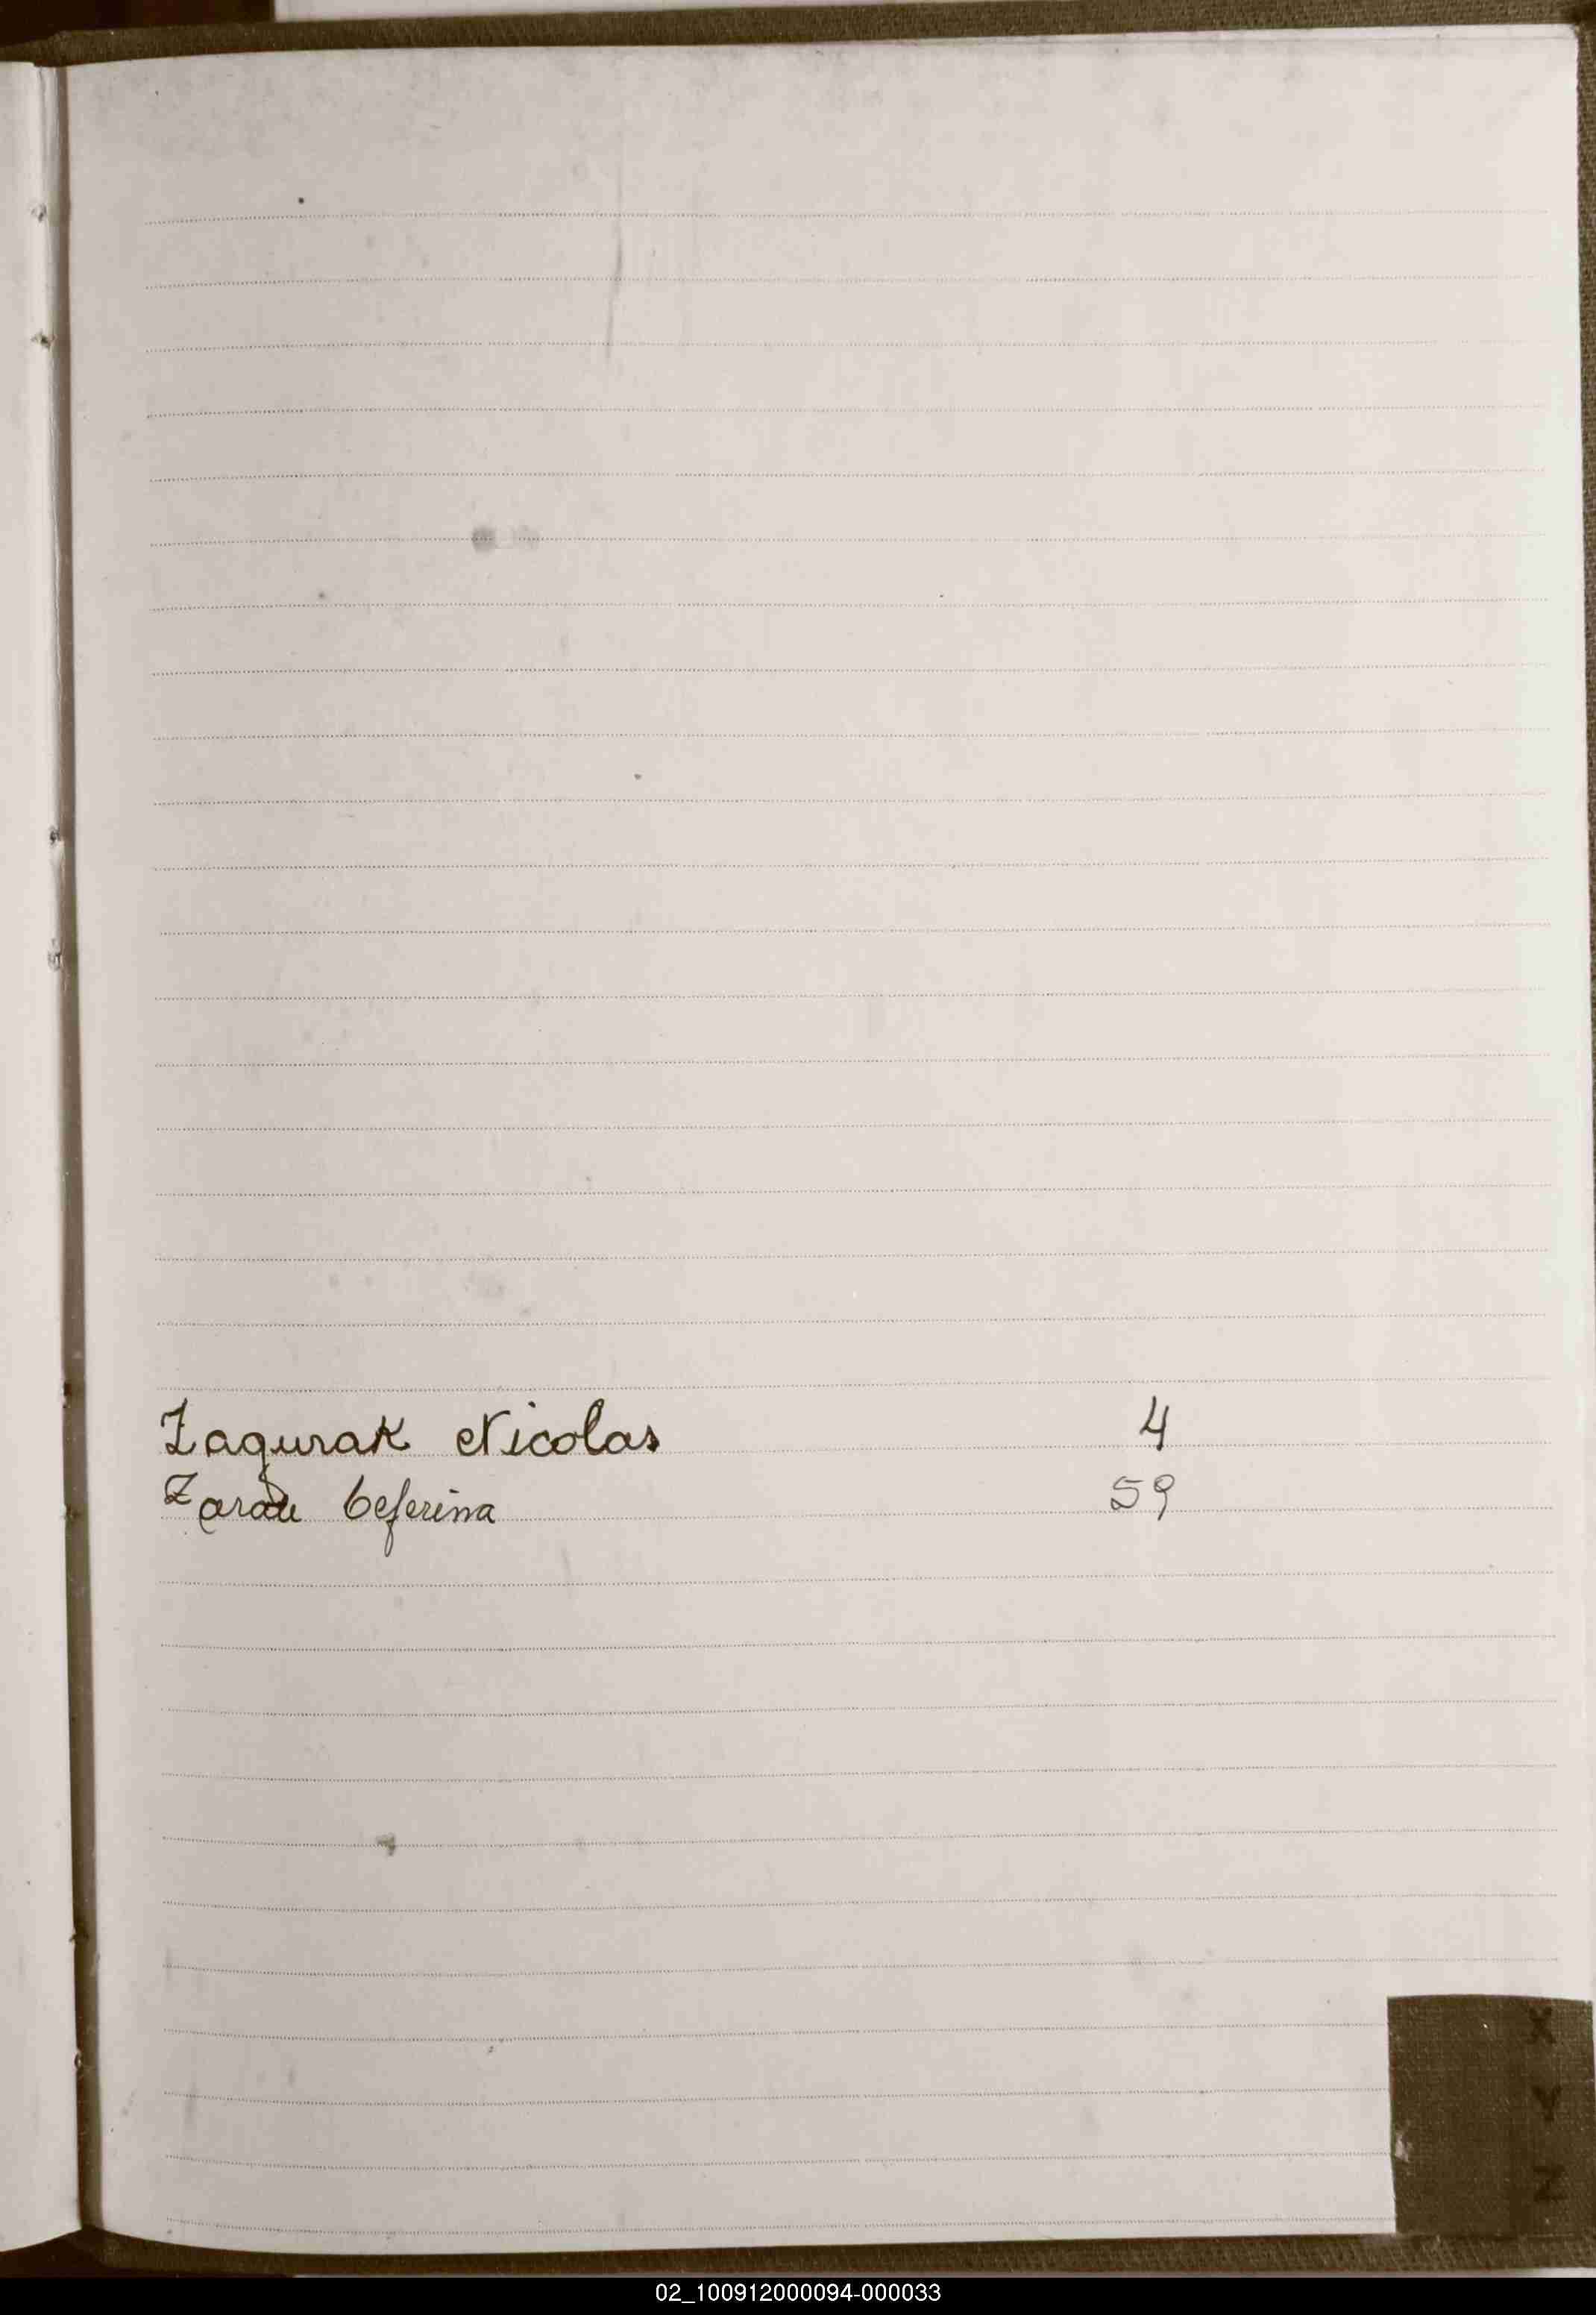 Zagurak Nicolas 4
Ceferina 59
X
Y
Z
02_100912000094-000033